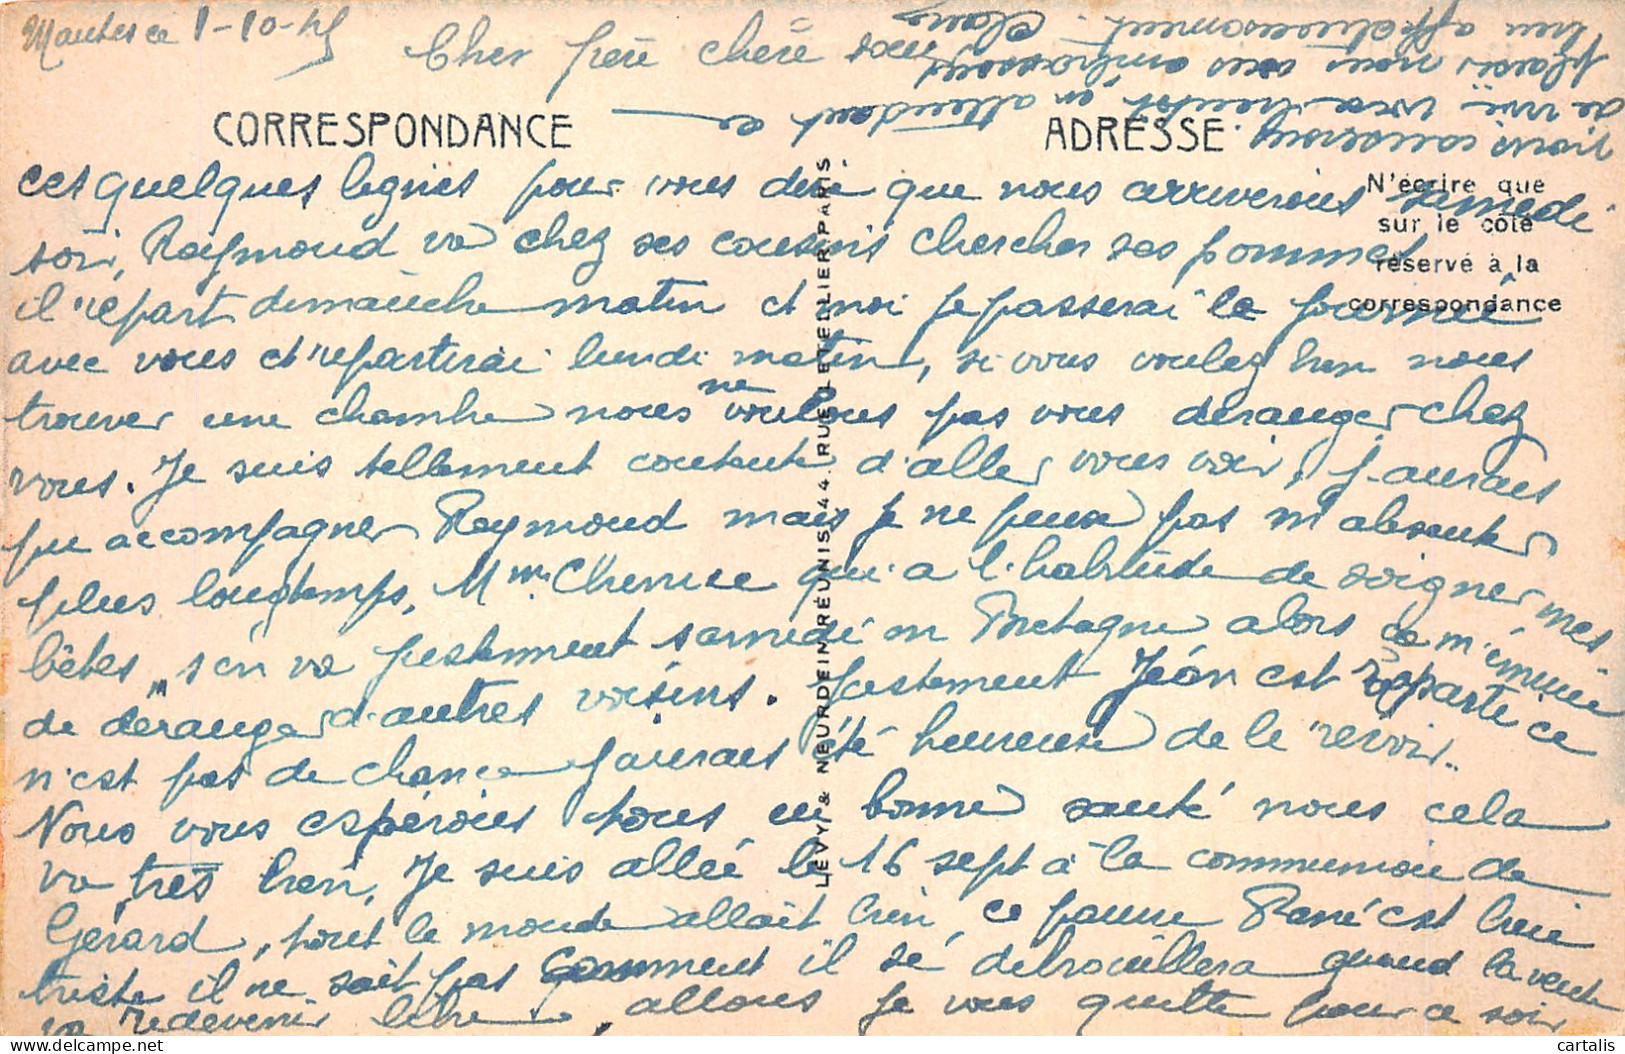 Mantes ce 1-10-45
Cher frère chère sœur
CORRESPONDANCE
ADRESSE
N'écrire que
sur le côté
réservé à la
correspondance
ces quelques lignes pour vous dire que nous arriverons samedi
soir, Raymond va chez ses cousins chercher ses pommes
il repart dimanche matin et moi je passerai la journée
avec vous et repartirai lundi matin, si vous voulez bien nous
trouver une chambre nous ne voulons pas vous déranger chez
vous. Je suis tellement contente d'aller vous voir, j'aurais
pu accompagner Raymond mais je ne peux pas m'absenter
plus longtemps, Mme qui a l'habitude de soigner mes
bêtes, s'en va justement samedi en Bretagne alors ça m'ennuie
de déranger d'autres voisins. Justement Jean est reparti ce
n'est pas de chance j'aurais été heureuse de le revoir.
Nous vous espérons tous en bonne santé nous cela
va très bien, Je suis allée le 16 sept à la communion de
Gérard, tout le monde allait bien, ce pauvre René est bien
triste il ne sait pas comment il se débrouillera quand la vente
va redevenir libre, allons je vous quitte pour ce soir
nous causerons
de vive voix bientôt, en attendant ce
plaisir nous vous embrassons
bien affectueusement.
LEVY & NEURDEIN RÉUNIS, 44. RUE LETELLIER, PARIS.
cartalis.com